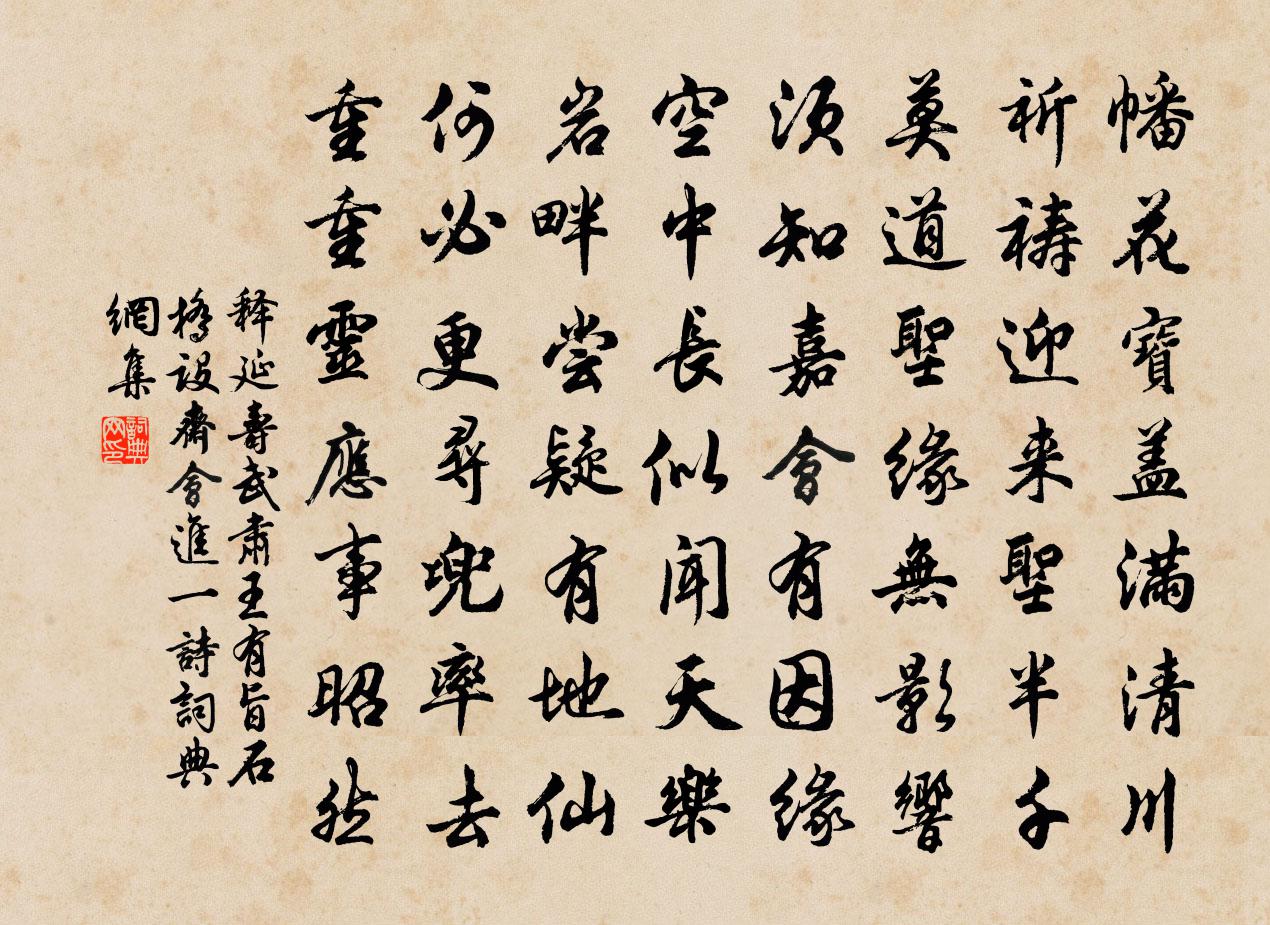 幡花寶盖滿清川
祈禱迎来聖半千
莫道聖緣無影響
須知嘉會有因緣
空中長似聞天樂
岩畔尝疑有地仙
何必更尋兜率去
重重靈應事昭然
释延壽武肅王有旨石
橋設齋會進一詩詞典
網集
詞典网印